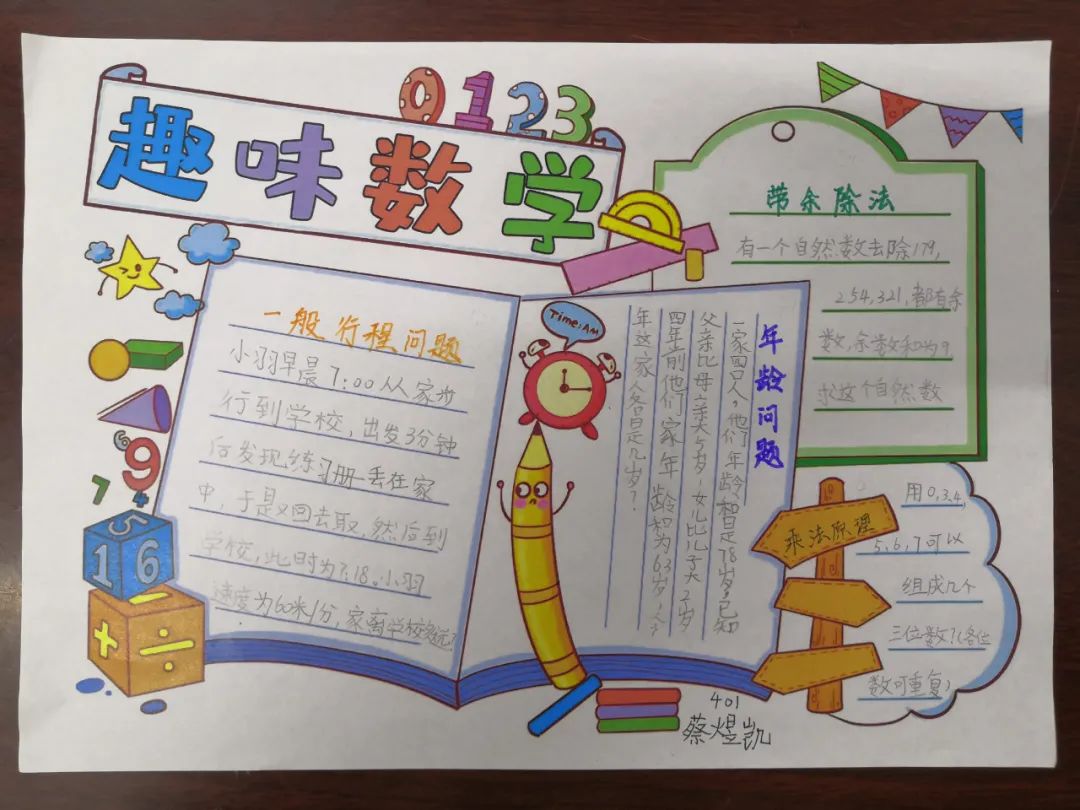 0123
趣味数学
Time:AM
一般行程问题
小羽早晨7:00从家步
行到学校，出发3分钟
后发现练习册丢在家
中，于是又回去取，然后到
学校，此时为7:18。小羽
速度为60米/分，家离学校多远？
年龄问题
一家四口人，他们年龄和是78岁，已知
父亲比母亲大3岁，女儿比儿子大2岁
四年前他们家年龄和为63岁，
年这家人各是几岁？
带余除法
有一个自然数去除179,
254,321,都有余
数,余数和为9
求这个自然数
乘法原理
用0,3,4,
5,6,7可以
组成几个
三位数?(各位
数可重复)
6
9
7
4
5
1 6
+ ÷
401
蔡煜凯